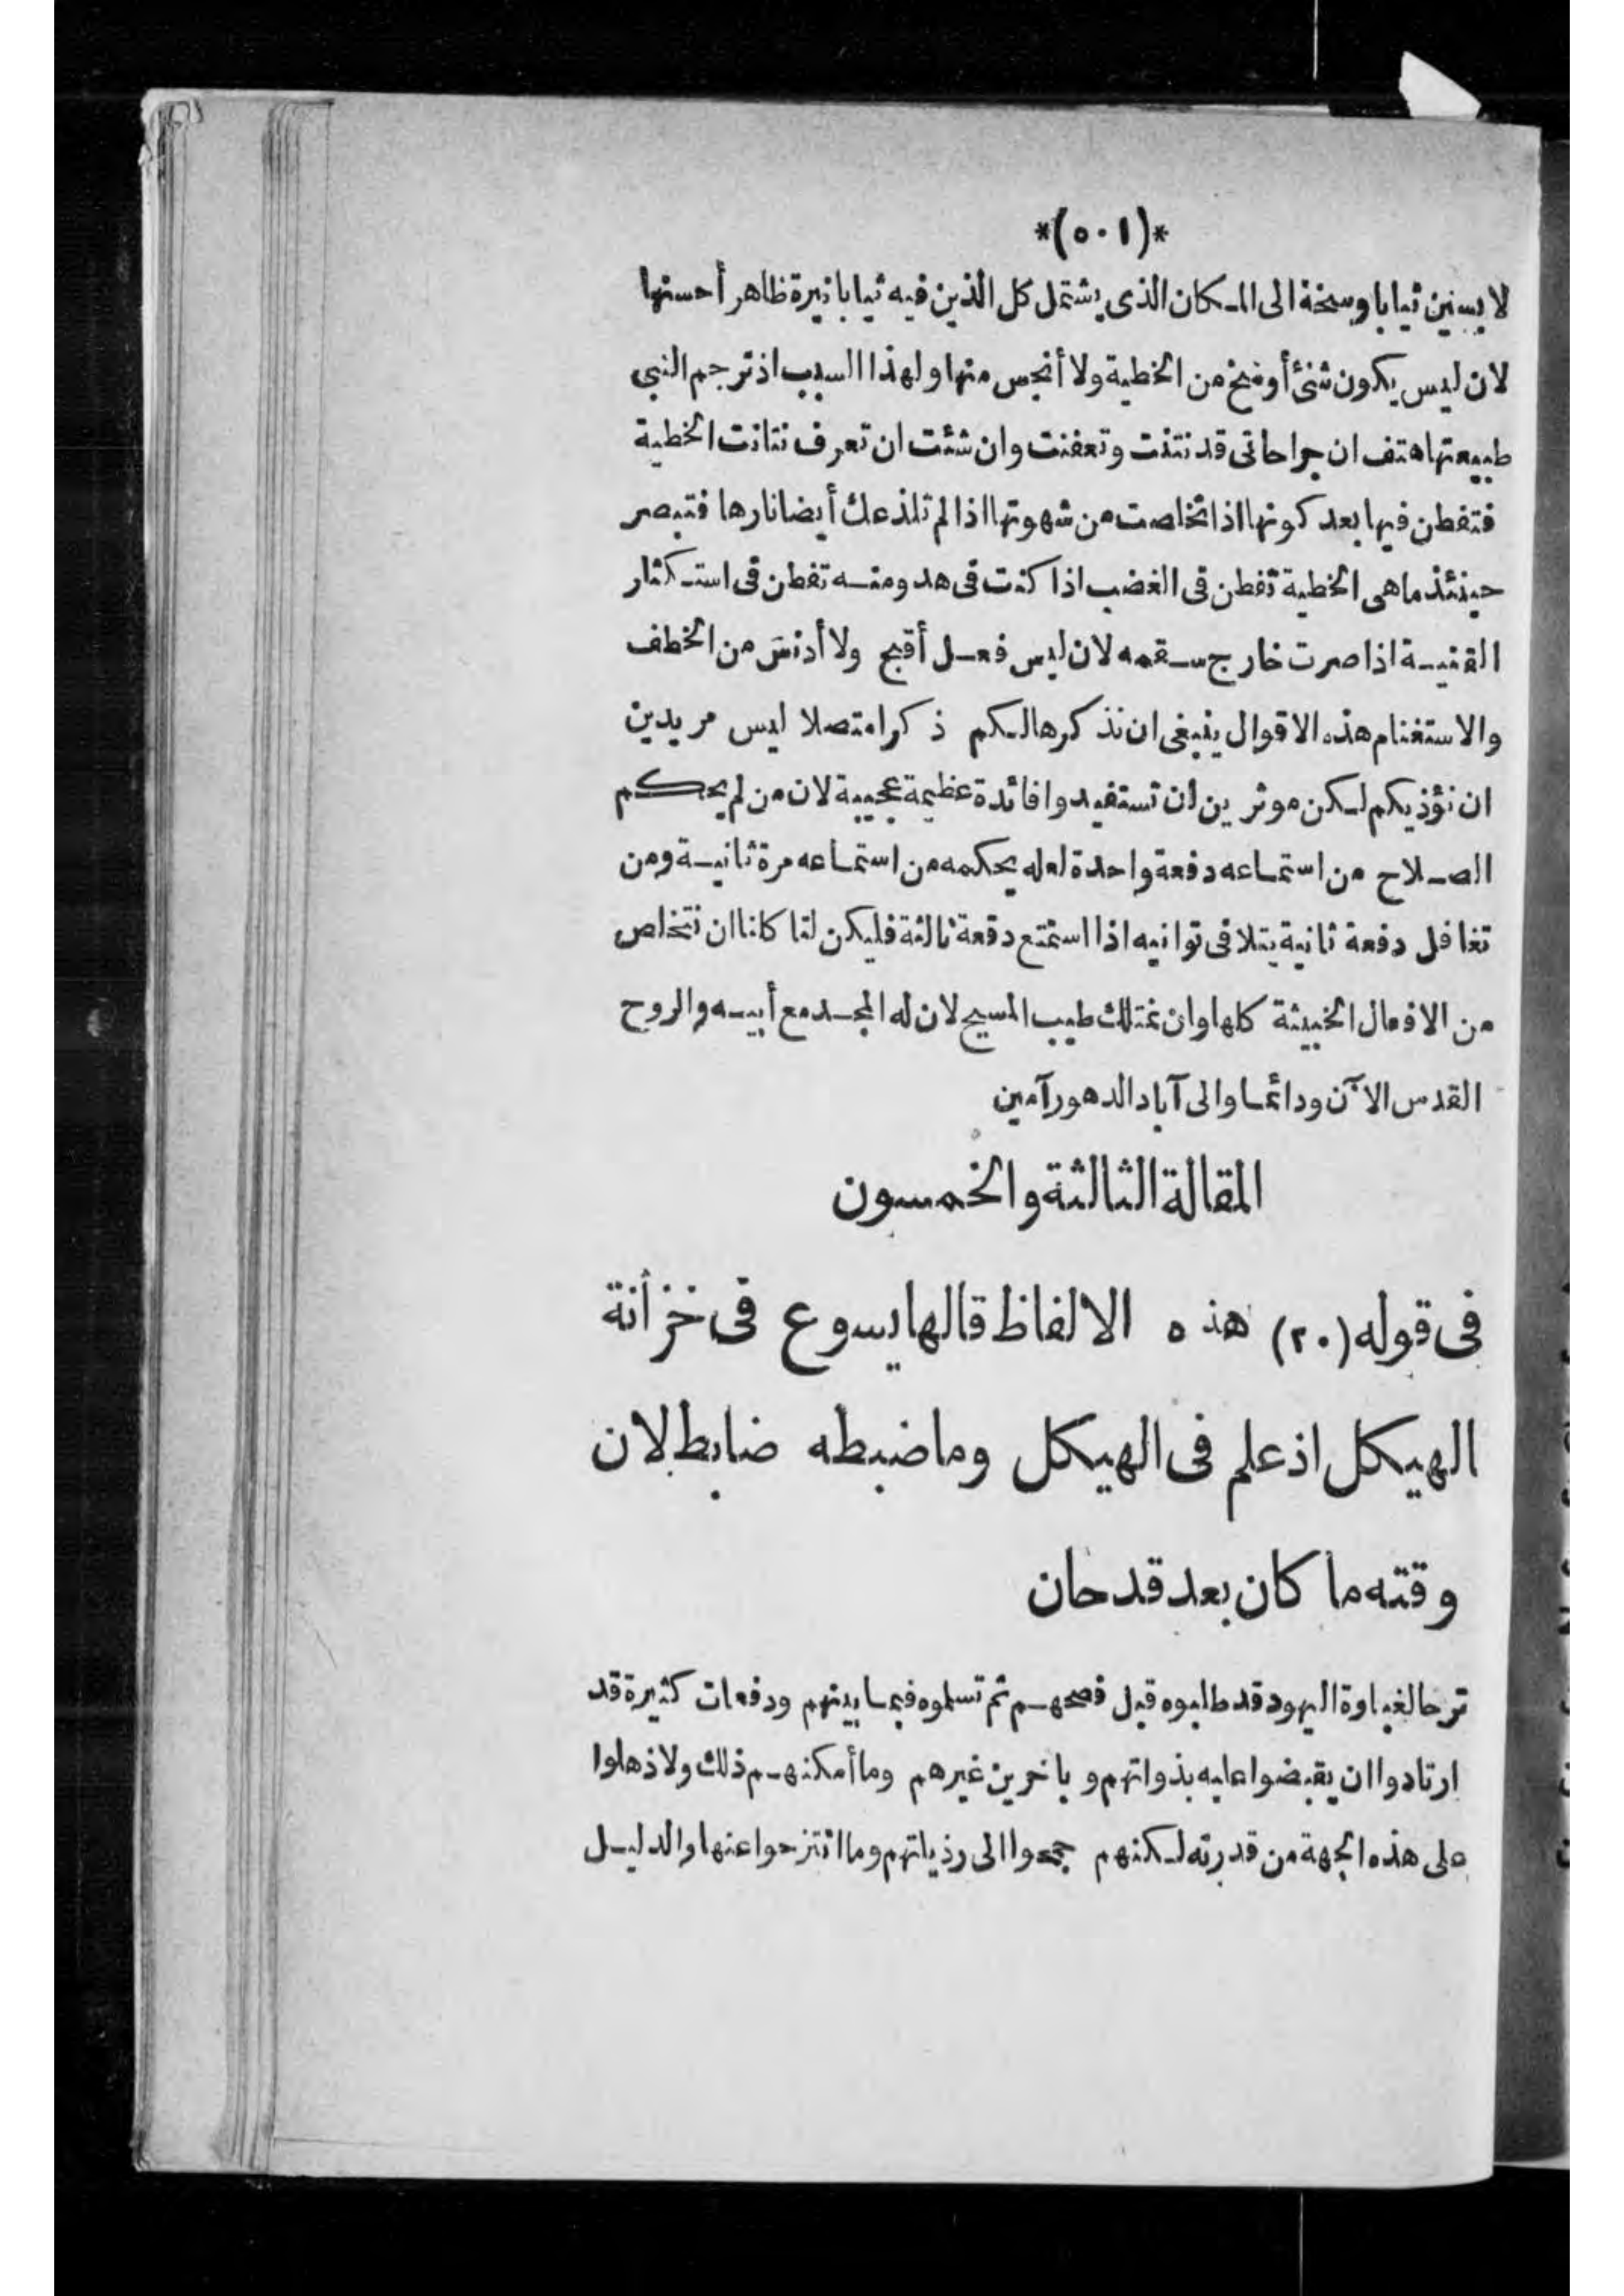 *(٥٠١)*
لابسين ثيابا وسخة الى المكان الذى يشتمل كل الذين فيه ثيابا نيرة ظاهر أحسنها
لان ليس يكون شئ أوسخ من الخطية ولا أنجس منها ولهذا السبب اذ ترجم النبى
طبيعتها هتف ان جراحاتى قد نتنت وتعفنت وان شئت ان تعرف نتانت الخطية
فتفطن فيها بعد كونها اذا تخلصت من شهوتها اذا لم تلذعك أيضا نارها فتبصر
حينئذ ماهى الخطية تفطن فى الغضب اذا كنت فى هدو منه تفطن فى استكثار
القنية اذا صرت خارج سقمه لان ليس فعل أقبح ولا أدنس من الخطف
والاستغنام هذه الاقوال ينبغى ان نذكرها لكم ذكرا متصلا ليس مريدين
ان نؤذيكم لكن موثرين ان تستفيدوا فائدة عظيمة عجيبة لان من لم يحكم
الصلاح من استماعه دفعة واحدة لعله يحكمه من استماعه مرة ثانية ومن
تغافل دفعة ثانية يتلافى توانيه اذا استمتع دفعة ثالثة فليكن لنا كلنا ان نتخلص
من الافعال الخبيثة كلها وان نمتلك طيب المسيح لان له المجد مع أبيه والروح
القدس الآن ودائما والى آباد الدهور آمين
المقالة الثالثة والخمسون
فى قوله (٢٠) هذه الالفاظ قالها يسوع فى خزانة
الهيكل اذ علم فى الهيكل وما ضبطه ضابط لان
وقته ما كان بعد قد حان
ترحا لغباوة اليهود قد طلبوه قبل فصحهم ثم تسلموه فيما بينهم ودفعات كثيرة قد
ارتادوا ان يقبضوا عليه بذواتهم وبآخرين غيرهم وما أمكنهم ذلك ولا ذهلوا
على هذه الجهة من قدرته لكنهم جمعوا الى رذيلتهم وما انتزحوا عنها والدليل